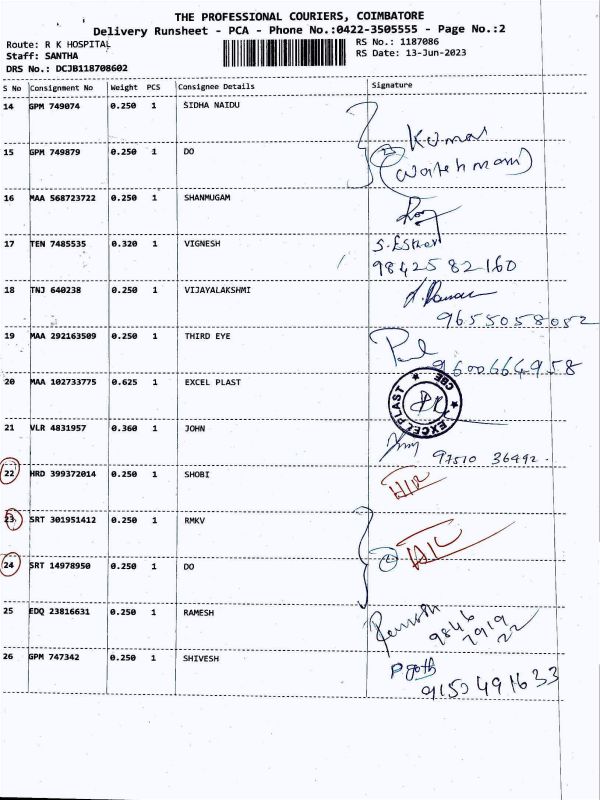 THE PROFESSIONAL COURIERS, COIMBATORE
Delivery Runsheet - PCA - Phone No.:0422-3505555 - Page No.:2
Route: R K HOSPITAL
RS No.: 1187086
Staff: SANTHA
RS Date: 13-Jun-2023
DRS No.: DCJB118708602
S No Consignment No Weight PCS Consignee Details Signature
14 GPM 749074 0.250 1 SIDHA NAIDU
Kumar
15 GPM 749879 0.250 1 DO
(watchman)
16 MAA 568723722 0.250 1 SHANMUGAM
17 TEN 7485535 0.320 1 VIGNESH
98425 82160
18 TNJ 640238 0.250 1 VIJAYALAKSHMI
9655058052
19 MAA 292163509 0.250 1 THIRD EYE
9600664958
20 MAA 102733775 0.625 1 EXCEL PLAST
EXCEL PLAST CBE
21 VLR 4831957 0.360 1 JOHN
97510 36492
22 HRD 399372014 0.250 1 SHOBI
23 SRT 301951412 0.250 1 RMKV
24 SRT 14978950 0.250 1 DO
25 EDQ 23816631 0.250 1 RAMESH
Ramesh
9846
26 GPM 747342 0.250 1 SHIVESH